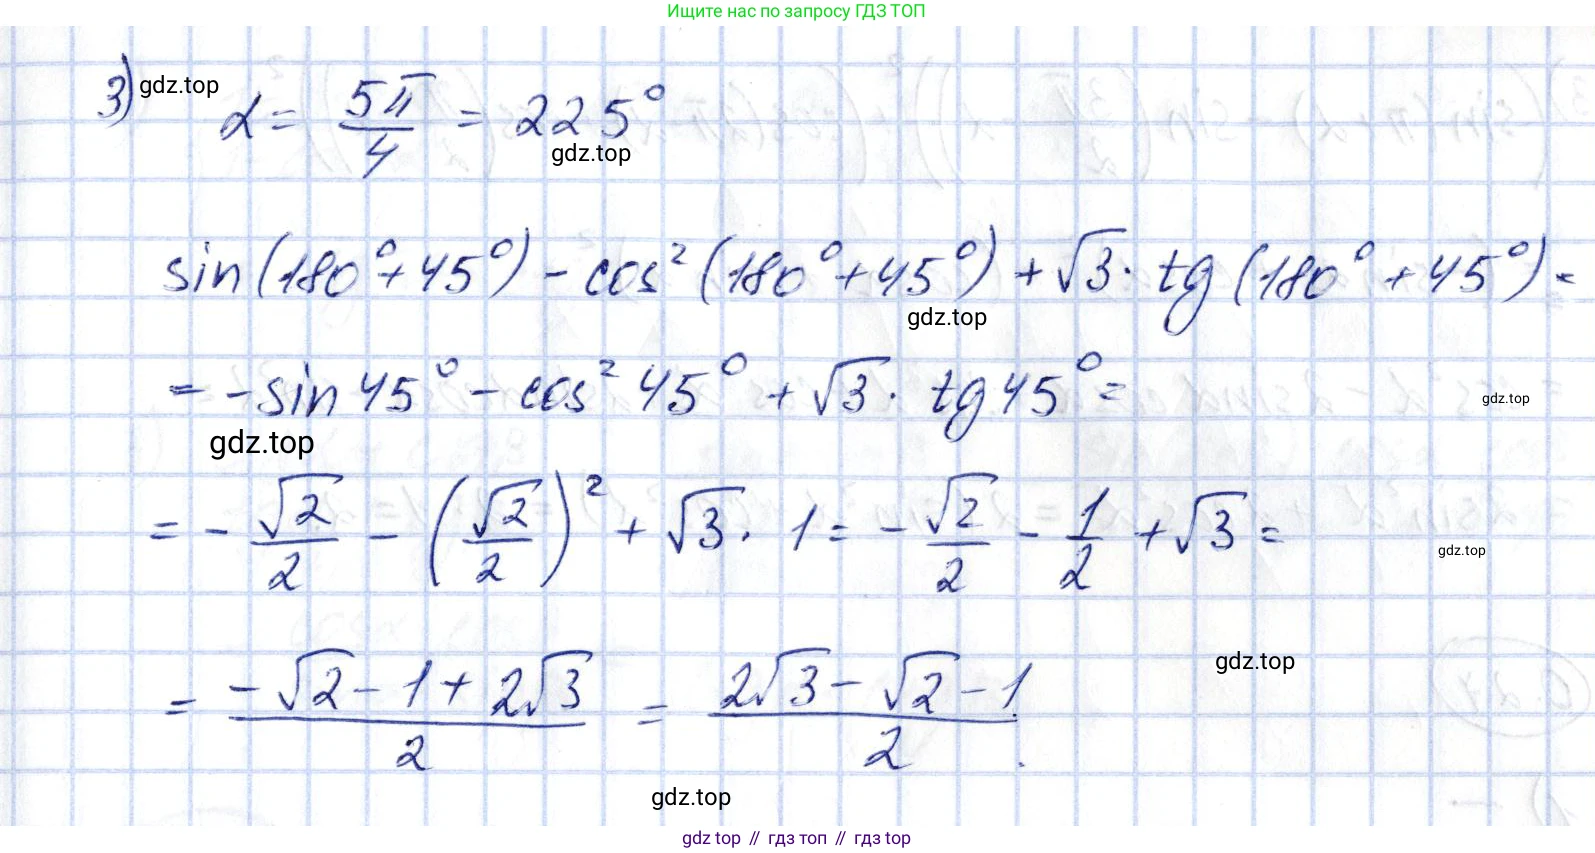 Ищите нас по запросу ГДЗ ТОП
3) gdz.top
α = 5π/4 = 225°
gdz.top
sin(180°+45°) - cos²(180°+45°) + √3 · tg(180°+45°) =
gdz.top
= -sin 45° - cos² 45° + √3 · tg 45° =
gdz.top
gdz.top
= - √2/2 - (√2/2)² + √3 · 1 = - √2/2 - 1/2 + √3 =
gdz.top
gdz.top
= (-√2 - 1 + 2√3)/2 = (2√3 - √2 - 1)/2.
gdz.top
gdz top // гдз топ // гдз top